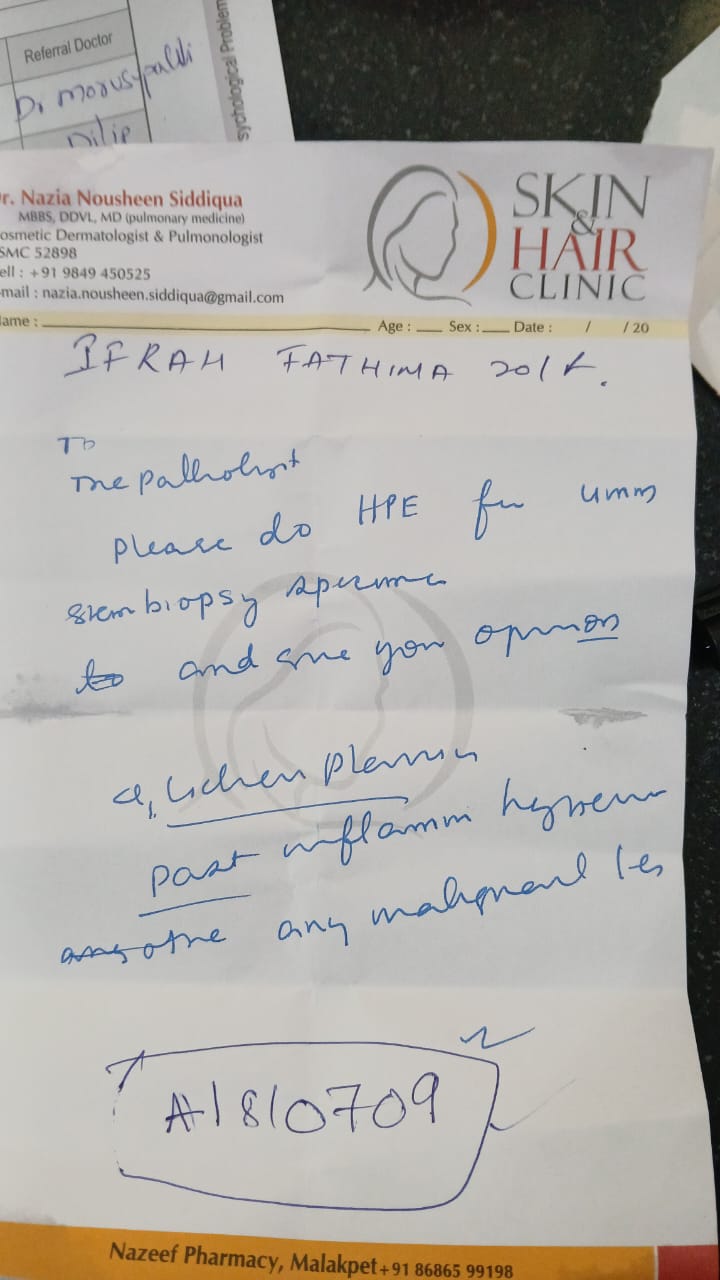 Referral Doctor
Dr morusupalli
Dilip
sychological Problem
r. Nazia Nousheen Siddiqua
MBBS, DDVL, MD (pulmonary medicine)
osmetic Dermatologist & Pulmonologist
SMC 52898
ell : +91 9849 450525
mail : nazia.nousheen.siddiqua@gmail.com
SKIN
&
HAIR
CLINIC
ame : Age : Sex : Date : / / 20
IFRAH FATHIMA 20/F.
To
The pathologist
please do HPE for 4mm
skin biopsy specimen
to and give your opinion
Lichen planus
Post inflamm
any othe any malignant les
A1810709
Nazeef Pharmacy, Malakpet +91 86865 99198